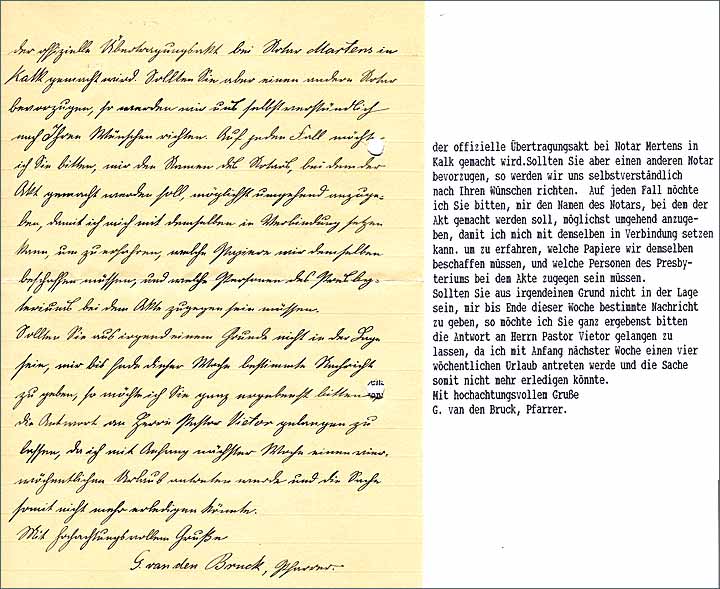 der offizielle Übertragungsakt bei Notar Martens in
Kalk gemacht wird. Sollten Sie aber einen andern Notar
bevorzugen, so werden wir uns selbstverständlich
nach Ihren Wünschen richten. Auf jeden Fall möchte
ich Sie bitten, mir den Namen des Notars, bei dem der
Akt gemacht werden soll, möglichst umgehend anzuge-
ben, damit ich mich mit demselben in Verbindung setzen
kann, um zu erfahren, welche Papiere wir demselben
beschaffen müssen, und welche Personen des Presby-
teriums bei dem Akte zugegen sein müssen.
Sollten Sie aus irgend einem Grunde nicht in der Lage
sein, mir bis Ende dieser Woche bestimmte Nachricht
zu geben, so möchte ich Sie ganz ergebenst bitten
die Antwort an Herrn Pastor Vietor gelangen zu
lassen, da ich mit Anfang nächster Woche einen vier-
wöchentlichen Urlaub antreten werde und die Sache
somit nicht mehr erledigen könnte.
Mit hochachtungsvollem Gruße
G. van den Bruck, Pfarrer.
der offizielle Übertragungsakt bei Notar Mertens in
Kalk gemacht wird.Sollten Sie aber einen anderen Notar
bevorzugen, so werden wir uns selbstverständlich
nach Ihren Wünschen richten. Auf jeden Fall möchte
ich Sie bitten, mir den Namen des Notars, bei den der
Akt gemacht werden soll, möglichst umgehend anzuge-
ben, damit ich mich mit demselben in Verbindung setzen
kann. um zu erfahren, welche Papiere wir demselben
beschaffen müssen, und welche Personen des Presby-
teriums bei dem Akte zugegen sein müssen.
Sollten Sie aus irgendeinem Grund nicht in der Lage
sein, mir bis Ende dieser Woche bestimmte Nachricht
zu geben, so möchte ich Sie ganz ergebenst bitten
die Antwort an Herrn Pastor Vietor gelangen zu
lassen, da ich mit Anfang nächster Woche einen vier
wöchentlichen Urlaub antreten werde und die Sache
somit nicht mehr erledigen könnte.
Mit hochachtungsvollem Gruße
G. van den Bruck, Pfarrer.